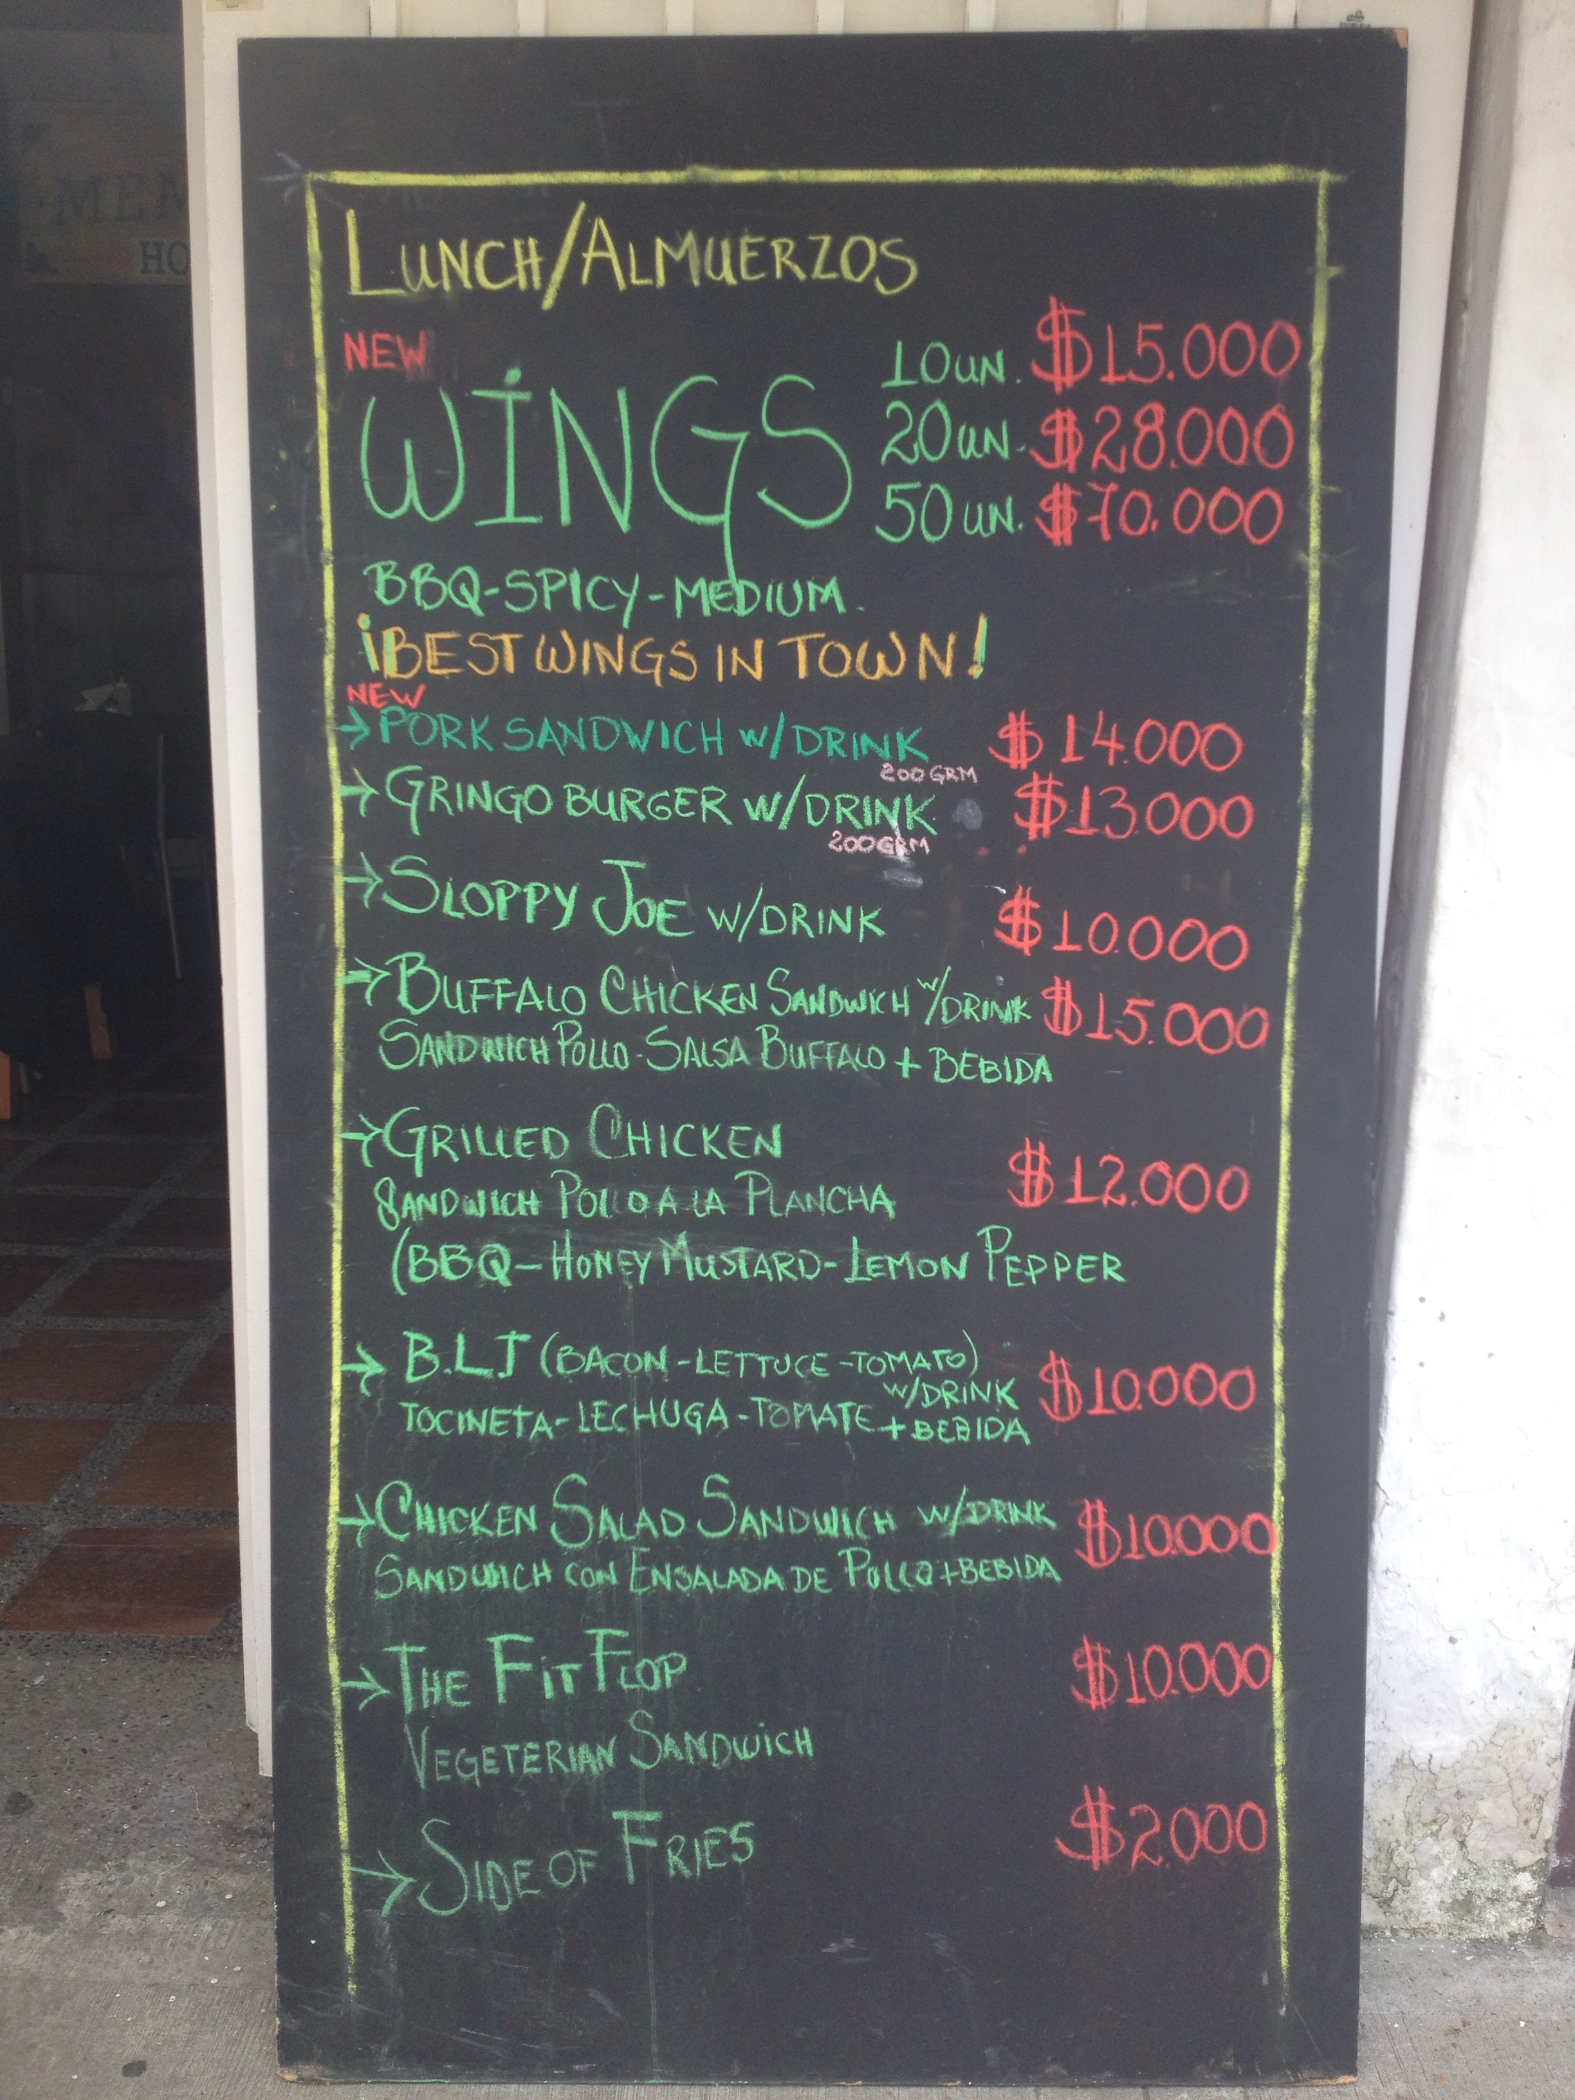 LUNCH/ALMUERZOS
NEW
WINGS
10UN. $15.000
20UN- $28.000
50UN. $70.000
BBQ-SPICY-MEDIUM.
¡BEST WINGS IN TOWN!
NEW
→PORK SANDWICH W/DRINK $14.000
200 GRM
→GRINGO BURGER W/DRINK $13.000
200GRM
→SLOPPY JOE W/DRINK $10.000
→BUFFALO CHICKEN SANDWICH W/DRINK $15.000
SANDWICH POLLO-SALSA BUFFALO + BEBIDA
→GRILLED CHICKEN
SANDWICH POLLO A LA PLANCHA $12.000
(BBQ-HONEY MUSTARD-LEMON PEPPER
→ B.L.T (BACON-LETTUCE-TOMATO)
W/DRINK $10.000
TOCINETA-LECHUGA-TOMATE +BEBIDA
→CHICKEN SALAD SANDWICH W/DRINK $10.000
SANDWICH CON ENSALADA DE POLLO+BEBIDA
→THE FIT FLOP $10.000
VEGETERIAN SANDWICH
→SIDE OF FRIES $2.000